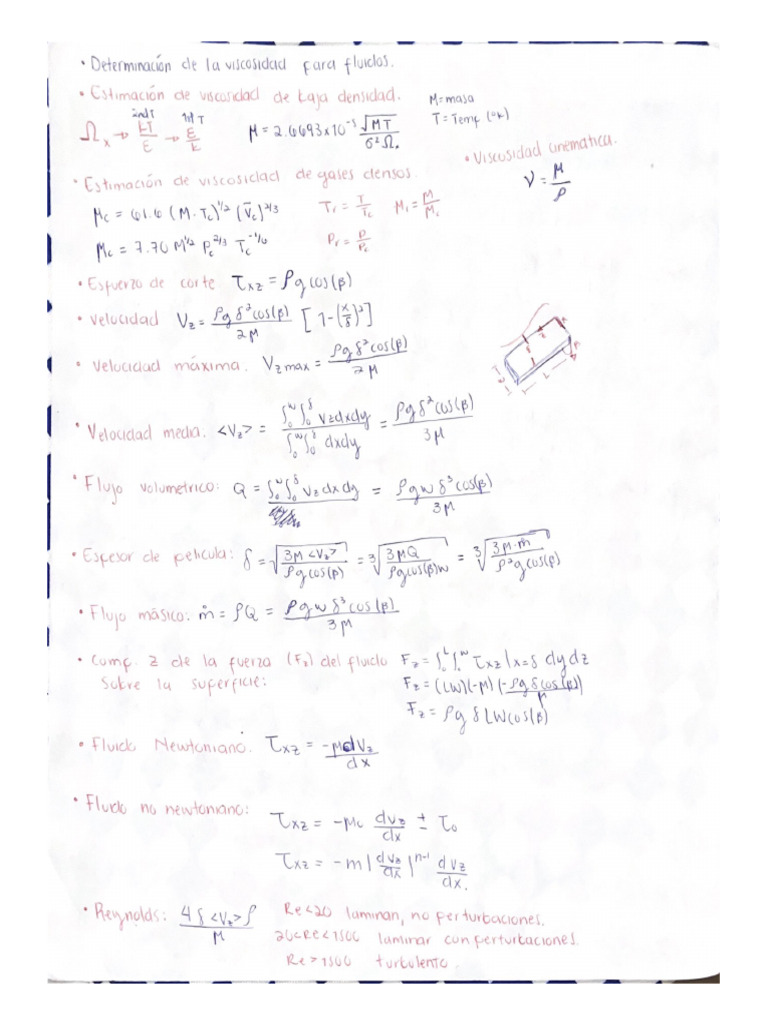 • Determinación de la viscosidad para fluidos.
• Estimación de viscosidad de baja densidad. M=masa
T=Temp (°K)
2nd T 1st T
Ωx → kT/ε → ε/k μ = 2.6693x10⁻⁵ √MT / σ²Ω.
• Viscosidad cinematica.
ν = μ/ρ
• Estimación de viscosidad de gases densos.
μc = 61.6 (M·Tc)^1/2 (Ṽc)^2/3 Tr = T/Tc Mr = M/Mc
μc = 7.70 M^1/2 Pc^2/3 Tc^-1/6 Pr = P/Pc
• Esfuerzo de corte τxz = ρg cos(β)
• Velocidad Vz = ρgδ²cos(β)/2μ [1-(x/δ)²]
• Velocidad máxima. Vz max = ρgδ²cos(β)/2μ
• Velocidad media: <Vz> = ∫₀^w∫₀^δ Vzdxdy / ∫₀^w∫₀^δ dxdy = ρgδ²cos(β)/3μ
• Flujo volumetrico: Q = ∫₀^w∫₀^δ Vzdxdy = ρgwδ³cos(β)/3μ
• Espesor de película: δ = √(3μ<Vz>/ρgcos(β)) = ³√(3μQ/ρgcos(β)w) = ³√(3μ·ṁ/ρ²gcos(β))
• Flujo másico: ṁ = ρQ = ρgwδ³cos(β)/3μ
• Comp. z de la fuerza (Fz) del fluido Fz = ∫₀^L∫₀^w τxz|x=δ dydz
Sobre la superficie: Fz = (LW)(-μ)(-ρgδcos(β)/μ)
Fz = ρgδLWcos(β)
• Fluido Newtoniano. τxz = -μdVz/dx
• Fluido no newtoniano: τxz = -μo dvz/dx ± τo
τxz = -m|dvz/dx|^n-1 dvz/dx.
• Reynolds: 4δ<Vz>ρ/μ Re<20 laminar, no perturbaciones.
20<Re<1500 laminar con perturbaciones.
Re>1500 turbulento.